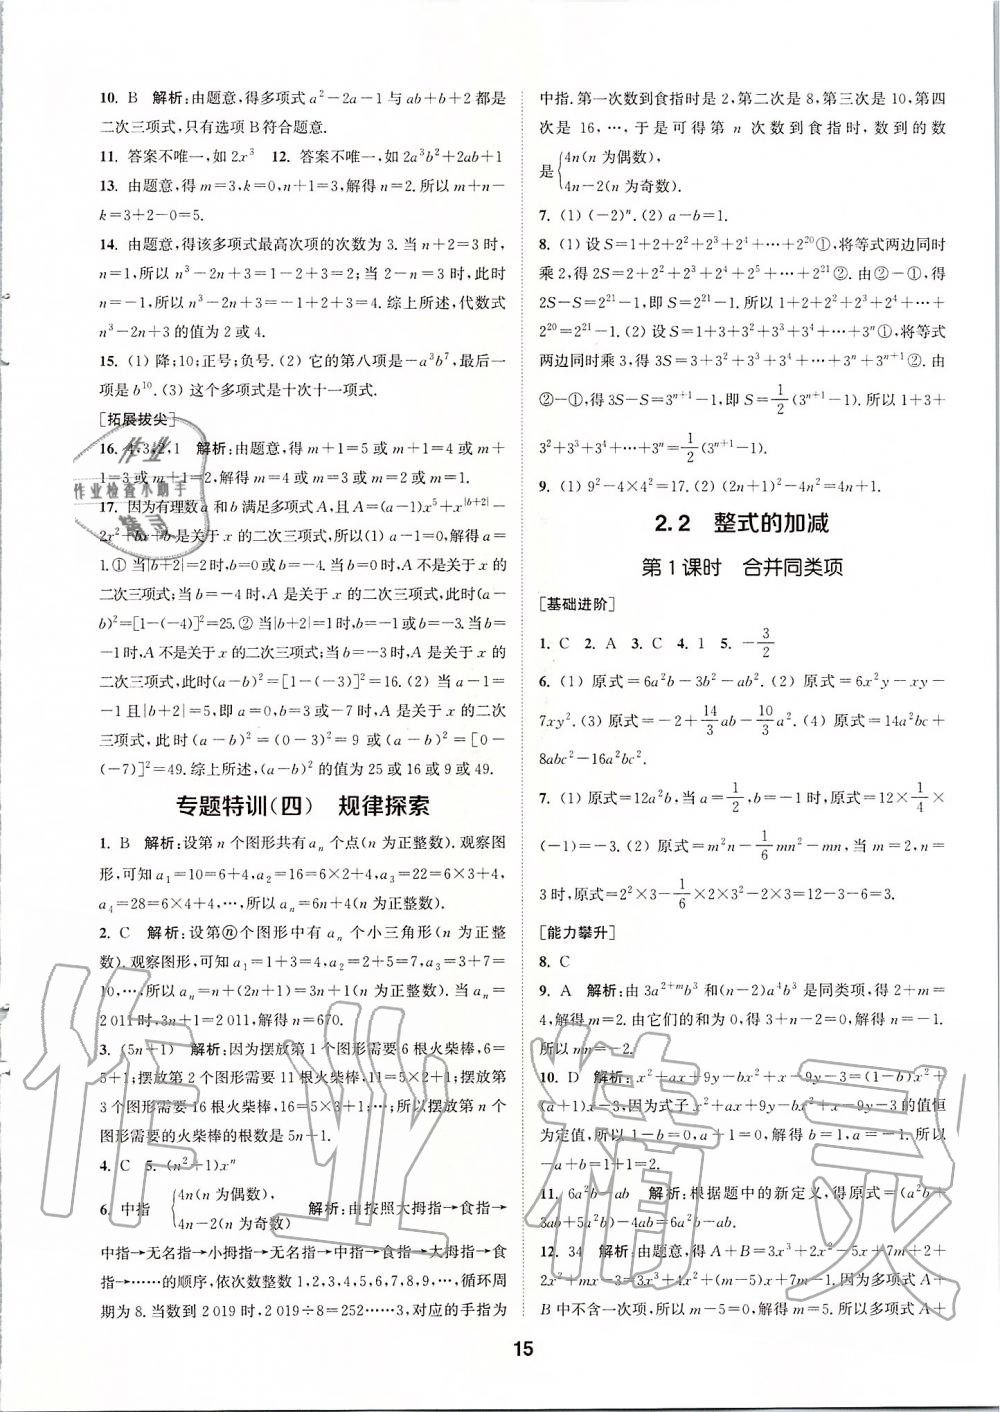 10. B 解析:由题意,得多项式a²-2a-1与ab+b+2都是
二次三项式,只有选项B符合题意.
11. 答案不唯一,如2x³ 12. 答案不唯一,如2a³b²+2ab+1
13. 由题意,得m=3,k=0,n+1=3,解得n=2.所以m+n-
k=3+2-0=5.
14. 由题意,得该多项式最高次项的次数为3.当n+2=3时,
n=1,所以n³-2n+3=1-2+3=2;当2-n=3时,此时
n=-1,所以n³-2n+3=-1+2+3=4.综上所述,代数式
n³-2n+3的值为2或4.
15. (1) 降;10;正号;负号.(2) 它的第八项是-a³b⁷,最后一
项是b¹⁰.(3) 这个多项式是十次十一项式.
[拓展拔尖]
16. 4,3,2,1 解析:由题意,得m+1=5或m+1=4或m+
1=3或m+1=2,所以m=4或3或2或1.
17. 因为有理数a和b满足多项式A,且A=(a-1)x⁵+x^|b+2|-
2x²+bx+b是关于x的二次三项式,所以a-1=0,解得a=
1.① 当|b+2|=2时,解得b=0(舍去)或b=-4.
当b=-4时,A是关于x的二次三项式,此时(a-
b)²=[1-(-4)]²=25.② 当|b+2|=1时,b=-1或b=-3.当b=
-1时,A不是关于x的二次三项式;当b=-3时,A是关于x的
二次三项式,此时(a-b)²=[1-(-3)]²=16.(2) 当a-1=
-1且|b+2|=5,即a=0,b=3或-7时,A是关于x的二次
三项式,此时(a-b)²=(0-3)²=9或(a-b)²=[0-
(-7)]²=49.综上所述,(a-b)²的值为25或16或9或49.
专题特训(四) 规律探索
1. B 解析:设第n个图形共有aₙ个点(n为正整数).观察图
形,可知a₁=10=6+4,a₂=16=6×2+4,a₃=22=6×3+4,
a₄=28=6×4+4,…,所以aₙ=6n+4(n为正整数).
2. C 解析:设第ⓝ个图形中有aₙ个小三角形(n为正整
数).观察图形,可知a₁=1+0+3=4,a₂=2+5=7,a₃=3+7=
10,…,所以aₙ=n+(2n+1)=3n+1(n为正整数).当aₙ=
2 011时,3n+1=2 011,解得n=670.
3. (5n+1) 解析:因为摆放第1个图形需要6根火柴棒,6=
5+1;摆放第2个图形需要11根火柴棒,11=5×2+1;摆放第
3个图形需要16根火柴棒,16=5×3+1;…;所以摆放第n个
图形需要的火柴棒的根数是5n+1.
4. C 5. (n²+1)xⁿ
6. 中指 {4n(n为偶数), 4n-2(n为奇数) 解析:由按照大拇指→食指→
中指→无名指→小拇指→无名指→中指→食指→大拇指→食
指→……的顺序,依次数整数1,2,3,4,5,6,7,8,9,…,循环周
期为8.当数到2 019时,2 019÷8=252……3,对应的手指为
中指.第一次数到食指时是2,第二次是8,第三次是10,第四
次是16,…,于是可得第n次数到食指时,数到的数
是 {4n(n为偶数), 4n-2(n为奇数).
7. (1) (-2)ⁿ.(2) a-b=1.
8. (1) 设S=1+2+2²+2³+2⁴+…+2²⁰①,将等式两边同时
乘2,得2S=2+2²+2³+2⁴+2⁵+…+2²¹②.由②-①,得
2S-S=2²¹-1,即S=2²¹-1.所以1+2+2²+2³+2⁴+…+
2²⁰=2²¹-1.(2) 设S=1+3+3²+3³+3⁴+…+3ⁿ①,将等式
两边同时乘3,得3S=3+3²+3³+3⁴+…+3ⁿ+3ⁿ⁺¹②.由
②-①,得3S-S=3ⁿ⁺¹-1,即S=1/2(3ⁿ⁺¹-1).所以1+3+
3²+3³+3⁴+…+3ⁿ=1/2(3ⁿ⁺¹-1).
9. (1) 9²-4×4²=17.(2) (2n+1)²-4n²=4n+1.
2.2 整式的加减
第1课时 合并同类项
[基础进阶]
1. C 2. A 3. C 4. 1 5. -3/2
6. (1) 原式=6a²b-3b²-ab².(2) 原式=6x²y-xy-
7xy².(3) 原式=-2+14/3ab-10/3a².(4) 原式=14a²bc+
8abc²-16a²bc².
7. (1) 原式=12a²b.当a=1/2,b=-1时,原式=12×1/4×
(-1)=-3.(2) 原式=m²n-1/6mn²-mn,当m=2,n=
3时,原式=2²×3-1/6×2×3²-2×3=12-3-6=3.
[能力攀升]
8. C
9. A 解析:由3a²⁺ᵐb³和(n-2)a⁴b³是同类项,得2+m=
4,解得m=2.由它们的和为0,得3+n-2=0,解得n=-1.
所以mn=-2.
10. D 解析:x²+ax+9y-bx²+x-9y-3=(1-b)x²+
(a+1)x-3,因为式子x²+ax+9y-bx²+x-9y-3的值恒
为定值,所以1-b=0,a+1=0,解得b=1,a=-1.所以
-a+b=1+1=2.
11. 6a²b-ab 解析:根据题中的新定义,得原式=(a²b+
3ab+5a²b)-4ab=6a²b-ab.
12. 34 解析:由题意,得A+B=3x³+2x²-5x+7m+2+
2x²+mx-3=3x³+4x²+(m-5)x+7m-1.因为多项式A+
B中不含一次项,所以m-5=0,解得m=5.所以多项式A+
15
作业
作业检查小助手
精灵
作业精灵